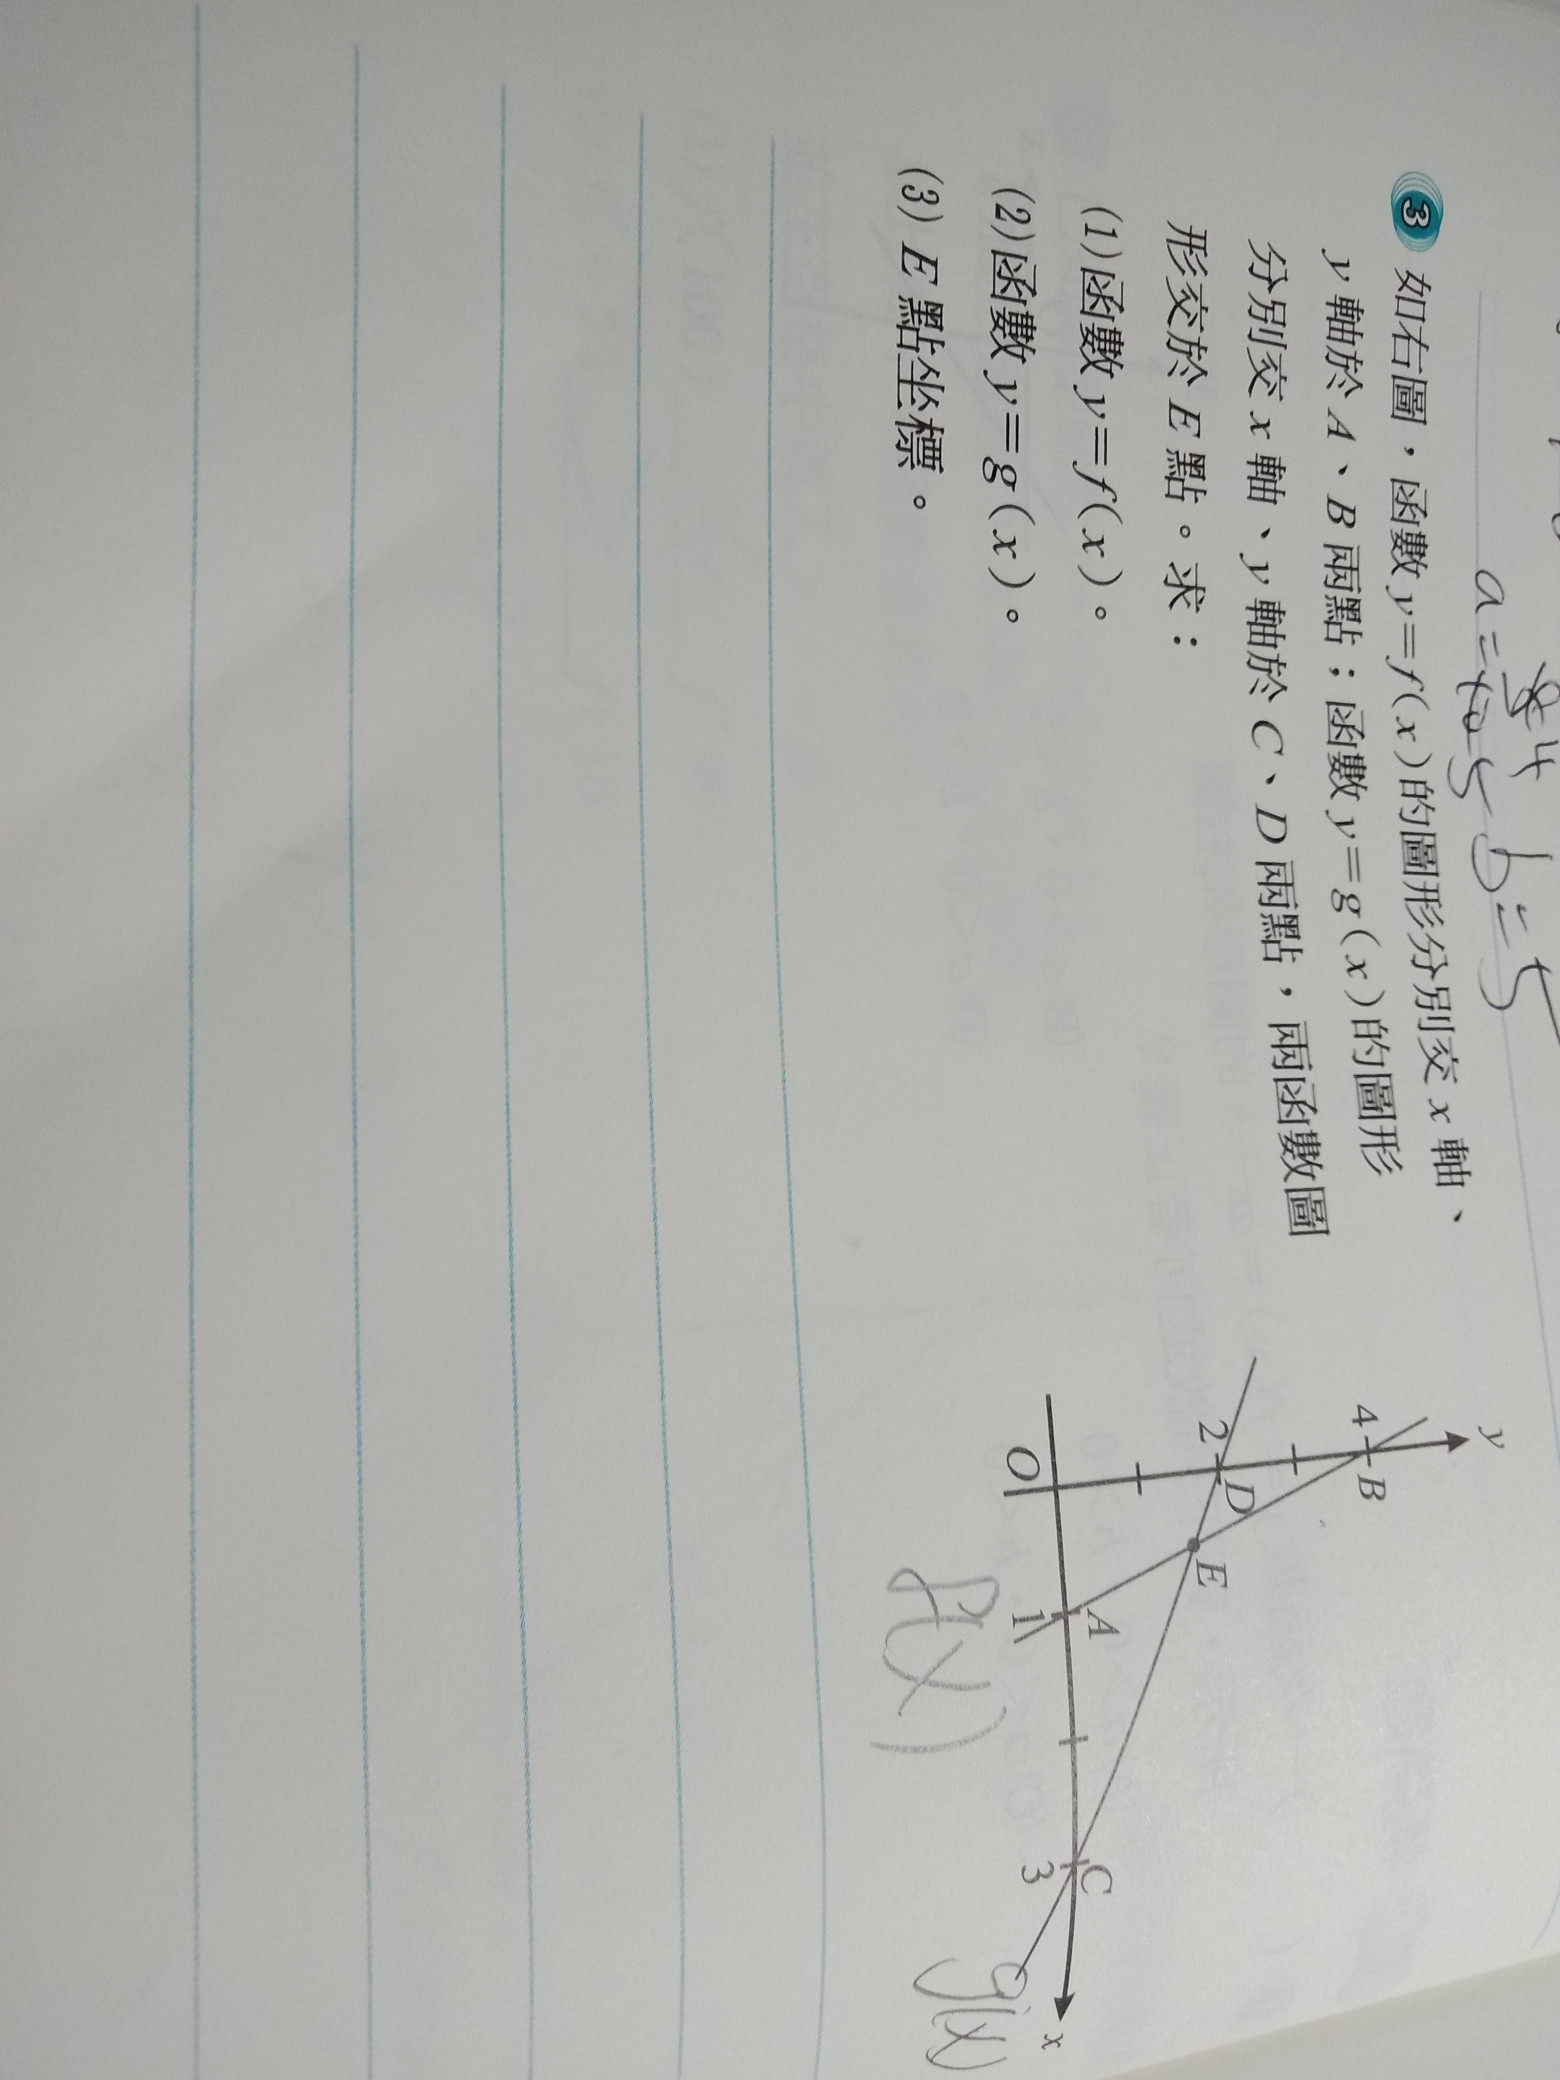 a = 5 b = 5
3 如右圖，函數 y=f(x)的圖形分別交 x 軸、
y 軸於 A、B 兩點；函數 y=g(x)的圖形
分別交 x 軸、y 軸於 C、D 兩點，兩函數圖
形交於 E 點。求：
(1)函數 y=f(x)。
(2)函數 y=g(x)。
(3) E 點坐標。
y
4 B
2 D E
O 1 A 3 C x
f(x) g(x)